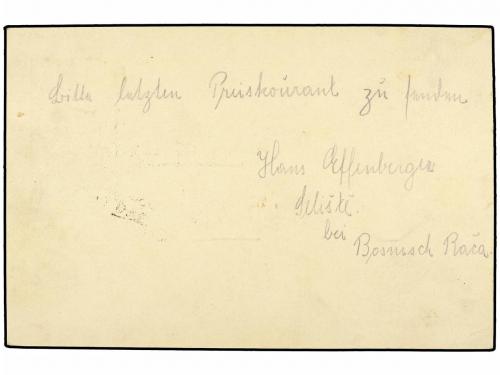 Bitte letzten Preiskourant zu senden
Hans Effenberger
Seliště
bei
Bosnisch Rača.